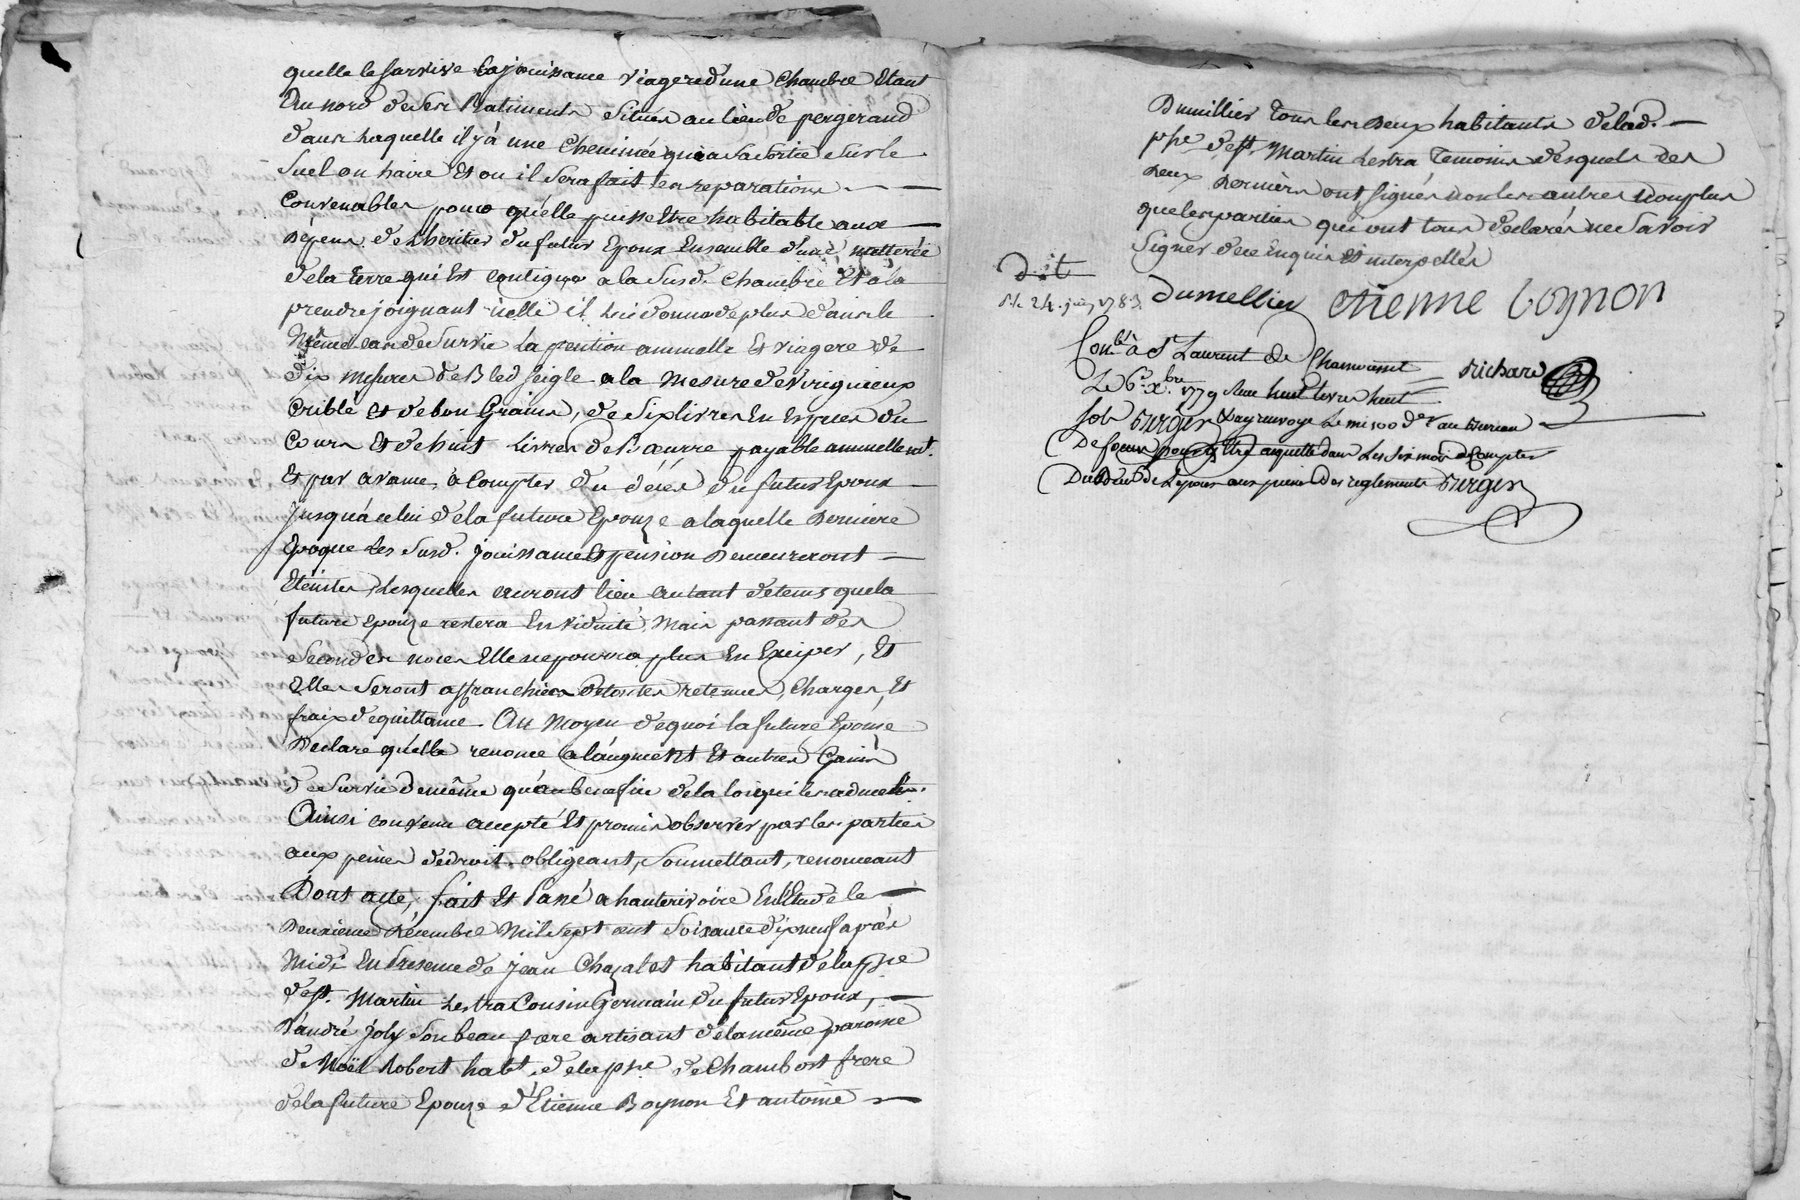 quelle le survive la jouissance viagere d'une chambre etant
Au nord de ses Batiments situés au lieu de pergerand
dans Laquelle il y à une Cheminée qui a sa sortie sur le
suel ou haire Et ou il sera fait les reparations
Convenables pour qu'elle puisse Etre habitable aux
Dépens de L'heritier du futur Epoux Ensemble d'une metterée
de la terre qui Est contigue a la susd. Chambre Et à la
prendre joignant icelle il lui donne de plus dans le
Même cas de survie La pention annuelle Et viagere de
dix mesures de Bled seigle a la mesure de Virignieux
Crible et de bon Grains, de six livres En Especes du
Cours Et de huit Livres de Beurre payable annuellemt.
Et par avance, a Compter du déces du futur Epoux
Jusqu'à celui de la future Epouze a laquelle Derniere
Epoque Les susd. jouissance Et pension Demeureront
Eteintes, Lesquelles auront lieu autant de tems que la
future Epouze restera En viduité, Mais passant des
secondes noces Elle ne pourra plus En Exciper, Et
Elles seront affranchies de toutes retenues, Charges, Et
fraix de quittance. Au Moyen de quoi la future Epouse
Declare qu'elle renonce a l'augment Et autres Gains
de survie de même qu'au benefice de la loi qui les admet.
Ainsi convenu accepté Et promis observer par les parties
aux peines de droit, obligeant, soumettant, renonceant
Dont acte, fait Et Passé a hauterivoire En L'Etude le
Deuxieme Décembre Mil sept cent soixante dix neuf après
Midi En Presence de jean Chazalet habitant de la psse
de st. Martin Lestra Cousin Germain du futur Epoux,
d'andré joly son beau frere artisant de la même paroisse
de Noël Robert habt. de la psse de Chambost frere
de la future Epouze d'Etienne Boynon Et antoine
Dumillier Tous les Deux habitants de lad.
psse de st. Martin Lestra Temoins desquels Les
Deux Derniers ont signés non les autres non plus
que les parties qui ont tous declarés ne savoir
signer de ce Enquis Et interpellés
d.t
Dumellier Etienne Boynon
Richard
Conlé à St Laurent de Chamousset
Le 6e Xbre 1779 Recu huit livres huit
sols Burgin Et ay renvoyé Le mi 100 der au Bureau
Burgin